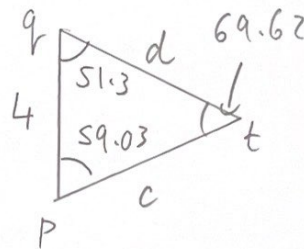 q
d
69.62
51.3
4
59.03
t
c
p